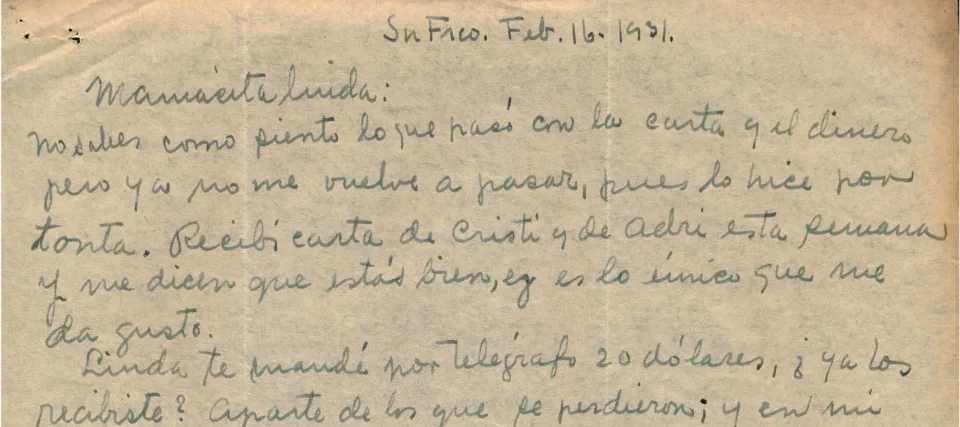 Sn Frco. Feb. 16-1931.
Mamacita linda:
No sabes como siento lo que pasó con la carta y el dinero
pero ya no me vuelve a pasar, pues lo hice por
tonta. Recibí carta de Cristi y de Adri esta semana
y me dicen que estás bien, es lo único que me
da gusto.
Linda te mandé por telégrafo 20 dólares, ¿ya los
recibiste? Aparte de los que se perdieron; y en mi